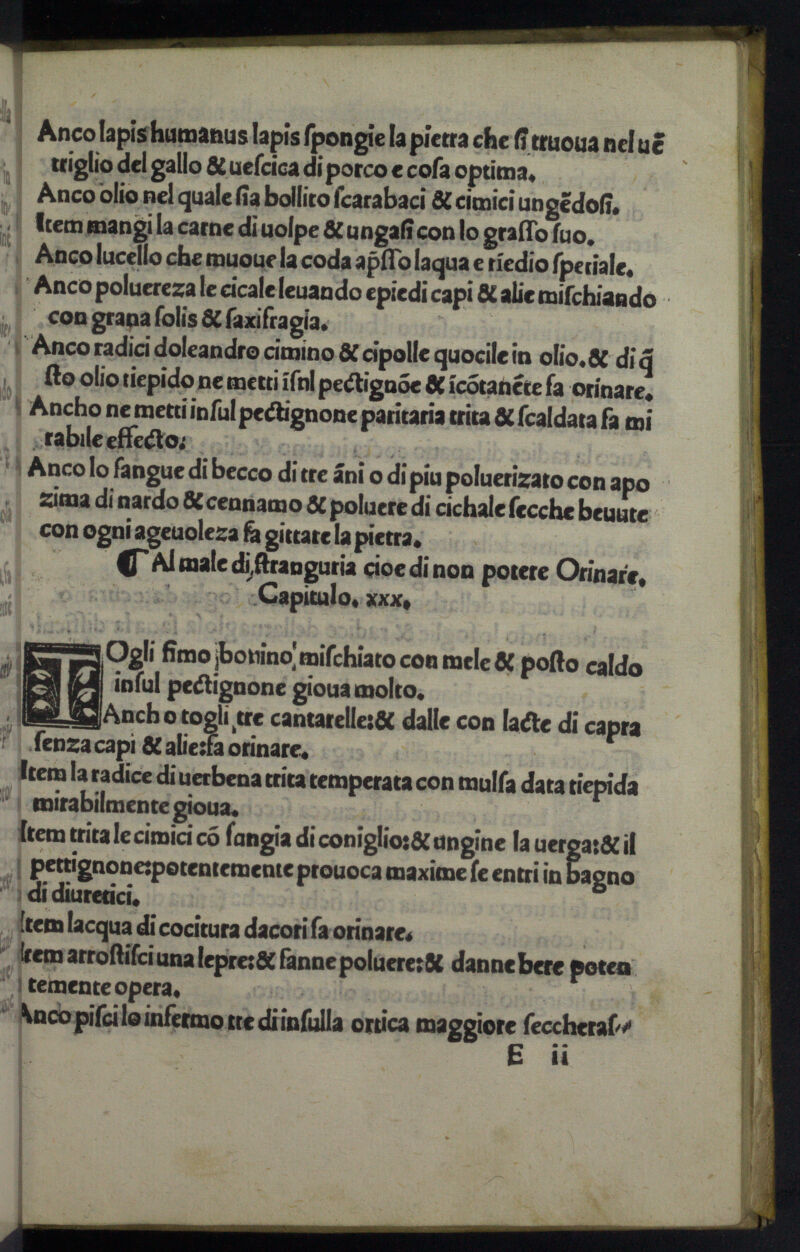 Anco lapis humanus lapis ſpongie la pietra che ſi truoua nel uē
triglio del gallo & ueſcica di porco e coſa optima.
Anco olio nel quale ſia bollito ſcarabaci & cimici ungēdoſi.
Item mangi la carne di uolpe & ungaſi con lo graſſo ſuo.
Anco lucello che muoue la coda ap̄ſſo laqua e rīedio ſpetiale.
Anco poluereza le cicale leuando epiedi capi & alie miſchiando
con grana ſolis & ſaxifragia.
Anco radici doleandro cimino & cipolle quocile in olio. & di q̄
ſto olio tiepido ne metti īſul pectignōe & īcōtanēte fa orinare.
Ancho ne metti inſul pectignone paritaria trita & ſcaldata fa mi
rabile effecto:
Anco lo ſangue di becco di tre āni o di piu poluerizato con apo
zima di nardo & cennamo & poluere di cichale ſecche beuute
con ogni ageuoleza fa gittare la pietra.
¶ Al male di ſtranguria cioe di non potere Orinare.
Capitulo. xxx.
TOgli fimo bouino miſchiato con mele & poſto caldo
inſul pectignone gioua molto.
Ancho togli tre cantarelle: & dalle con lacte di capra
ſenza capi & alie: fa orinare.
Item la radice di uerbena trita temperata con mulſa data tiepida
mirabilmente gioua.
Item trita le cimici cō ſangia di coniglio: & ungine la uerga: & il
pettignone: potentemente prouoca maxime ſe entri in bagno
di diuretici.
Item lacqua di cocitura dacori fa orinare.
Item arroſtiſci una lepre: & fanne poluere: & danne bere poten
temente opera.
Anco piſci lo infermo tre di inſulla ortica maggiore ſeccheraſ⸗
E ii